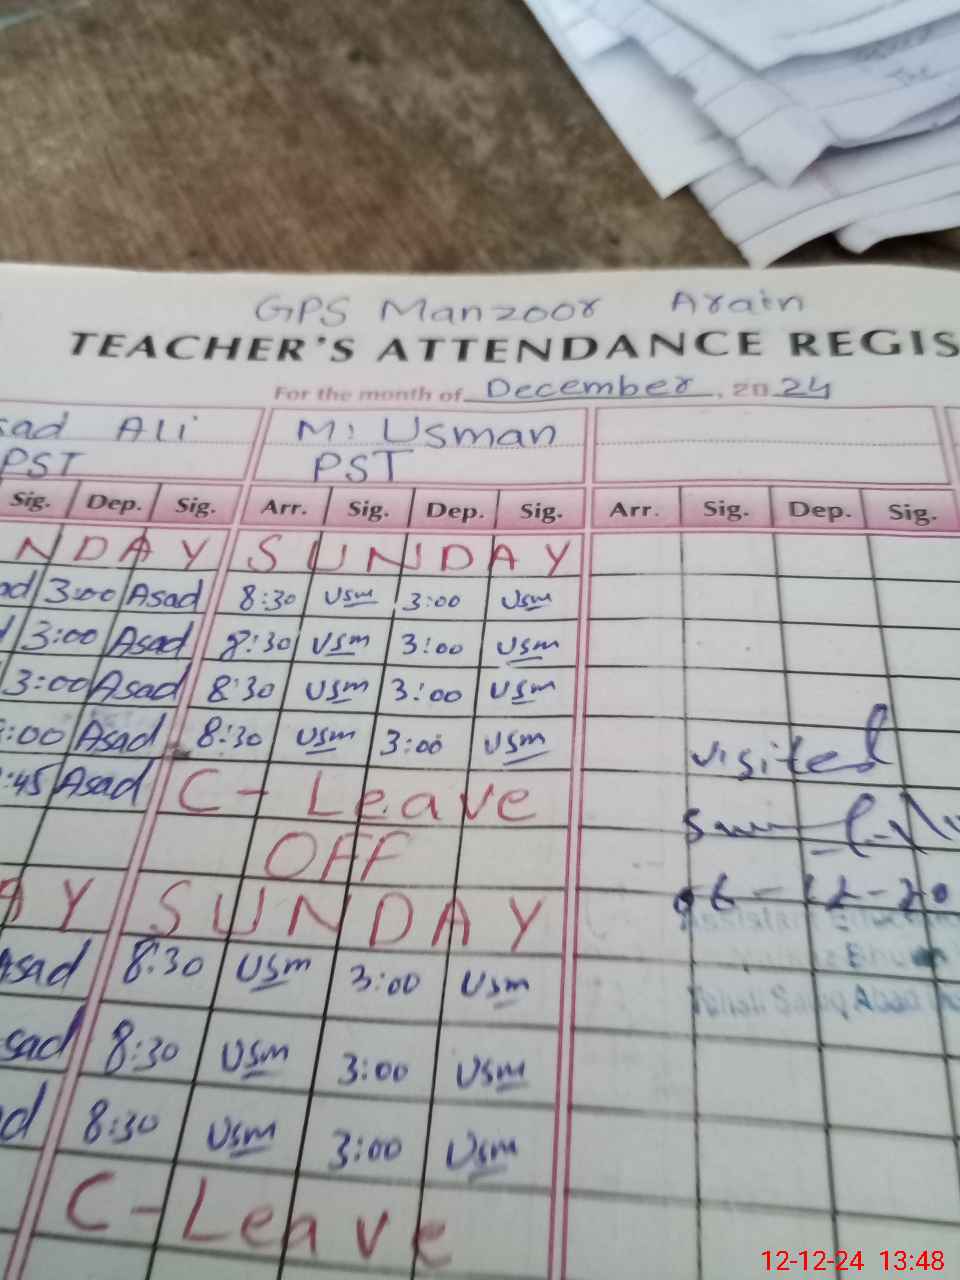 GPS Manzoor Arain
TEACHER'S ATTENDANCE REGIS
For the month of December, 2024
sad Ali M. Usman
PST PST
Sig. Dep. Sig. Arr. Sig. Dep. Sig. Arr. Sig. Dep. Sig.
NDAY SUNDAY
ad 3:00 Asad 8:30 Usm 3:00 Usm
3:00 Asad 8:30 Usm 3:00 Usm
3:00 Asad 8:30 Usm 3:00 Usm
:00 Asad 8:30 Usm 3:00 Usm
visited
:45 Asad C- Leave
OFF
AY SUNDAY
06-12-20
Asad 8:30 Usm 3:00 Usm
sad 8:30 Usm 3:00 Usm
d 8:30 Usm 3:00 Usm
C-Leave
12-12-24 13:48